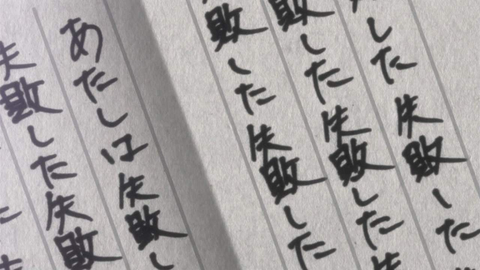 した失敗した
敗した失敗した失
敗した失敗した
あたしは失敗し
失敗した失敗